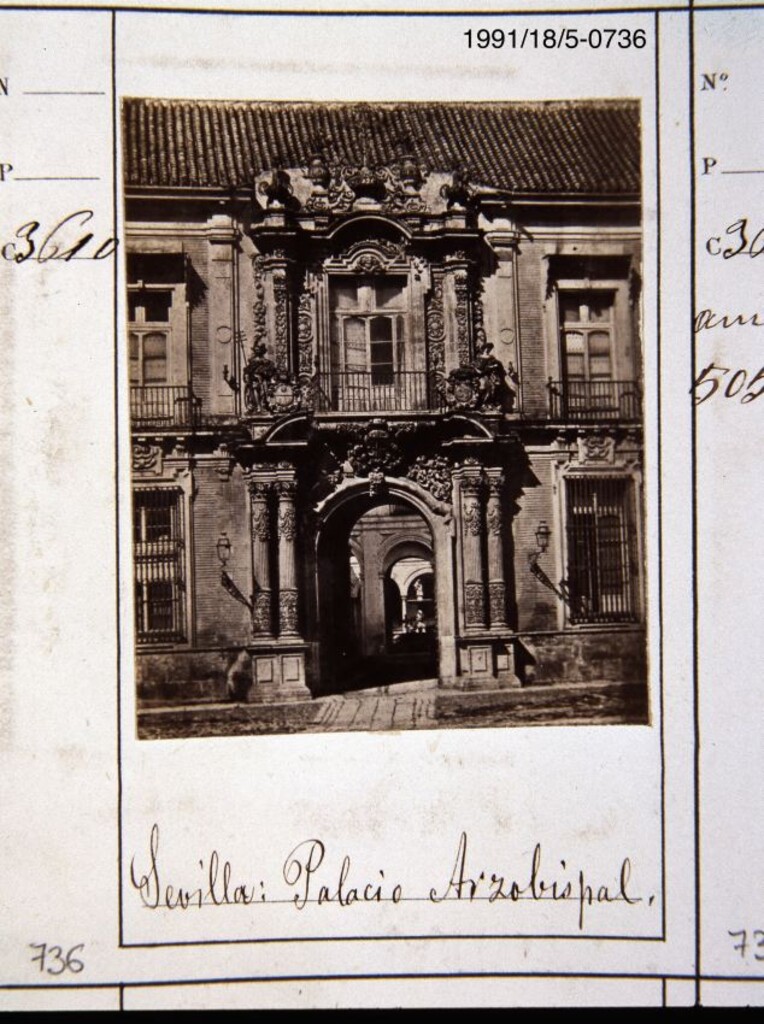 1991/18/5-0736
N
Nº
P
P
C 3610
C 36
505
Sevilla: Palacio Arzobispal.
736
73